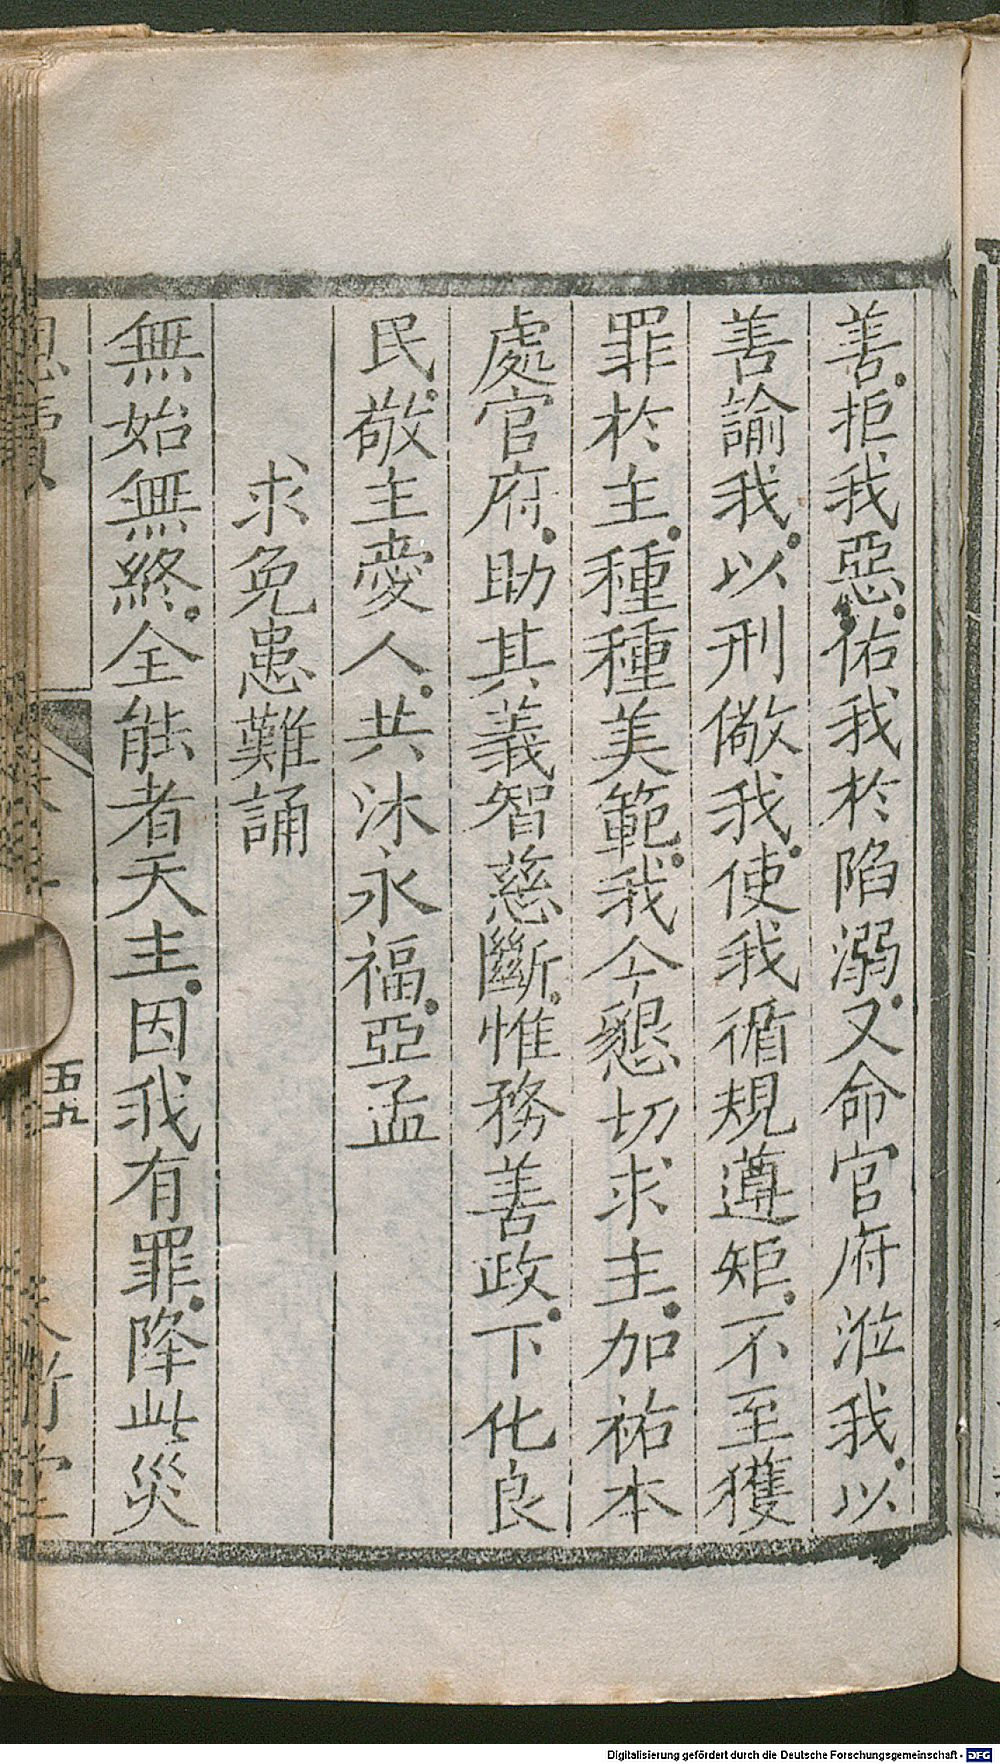 善。拒我惡。佑我於陷溺。又命官府涖我。以
善諭我。以刑儆我。使我循規遵矩。不至獲
罪於主。種種美範。我今懇切求主。加祐本
處官府。助其義智慈斷。惟務善政。下化良
民。敬主愛人。共沐永福。亞孟
求免患難誦
無始無終。全能者天主。因我有罪。降此災
五九
Digitalisierung gefördert durch die Deutsche Forschungsgemeinschaft - DFG